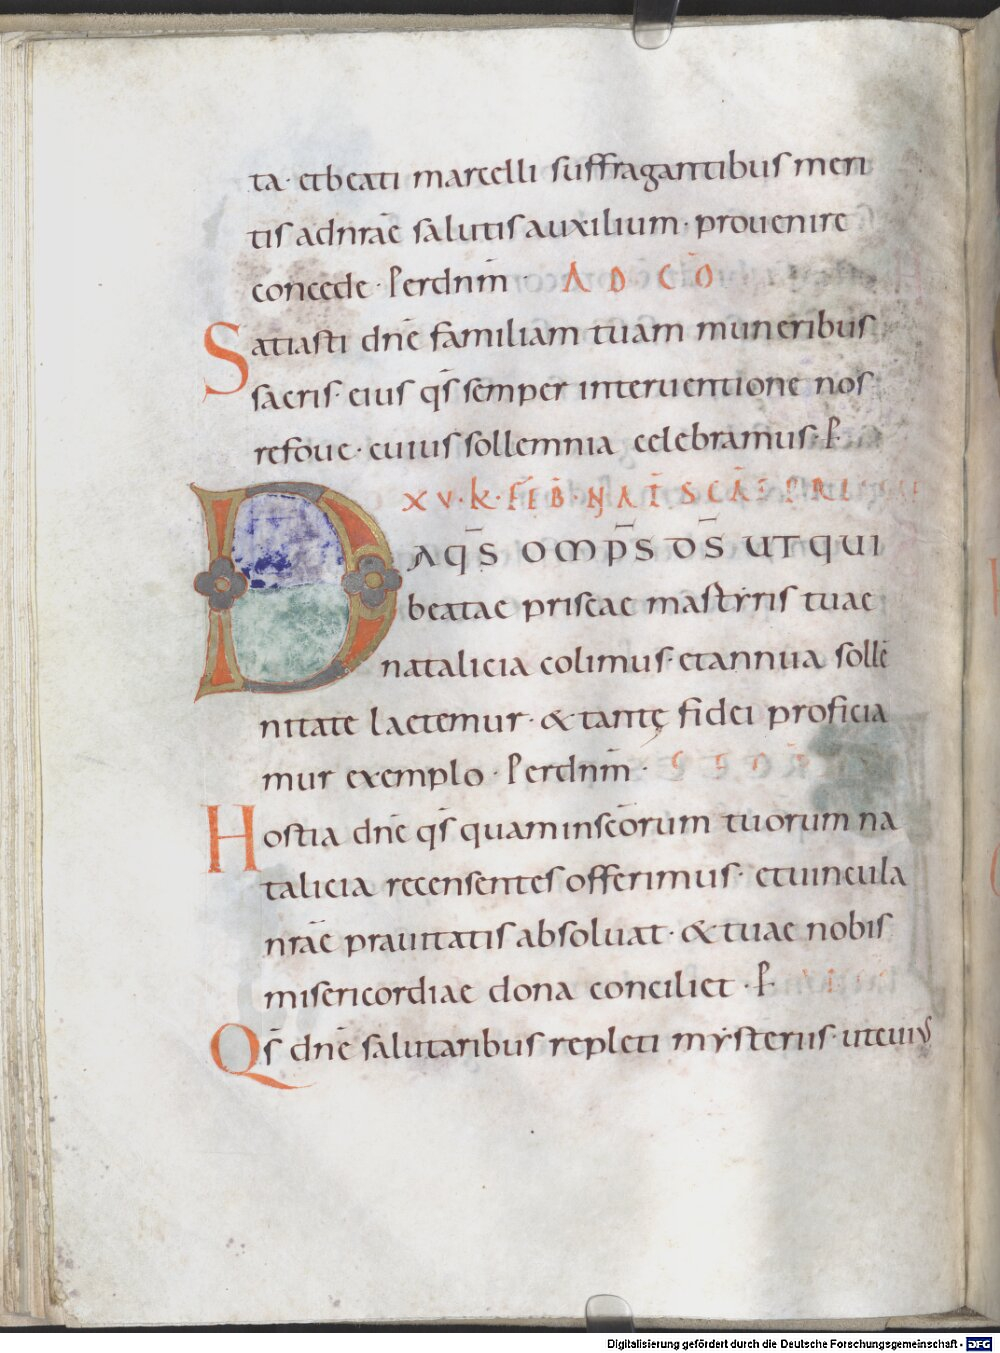 ta· et beati marcelli suffragantibus meri
tis ad nr̄ae salutis auxilium· prouenire
concede· Per dn̄m· AD CO̅
Satiasti dn̄e familiam tuam muneribus
sacris· eius qs̄ semper interuentione nos
refoue· cuius sollemnia celebramus· P̱
XV·K·FEB·NAT̄ SCAE PRI
DA qs̄ omp̄s ds̄ ut qui
beatae priscae martyris tuae
natalicia colimus· et annua sollē
nitate laetemur· & tantę fidei proficia
mur exemplo· Per dn̄m·
Hostia dn̄e qs̄ quam in sc̄orum tuorum na
talicia recensentes offerimus· et uincula
nr̄ae prauitatis absoluat· & tuae nobis
misericordiae dona conciliet· P̱
Qs̄ dn̄e salutaribus repleti mysteriis· ut cuius
Digitalisierung gefördert durch die Deutsche Forschungsgemeinschaft - DFG